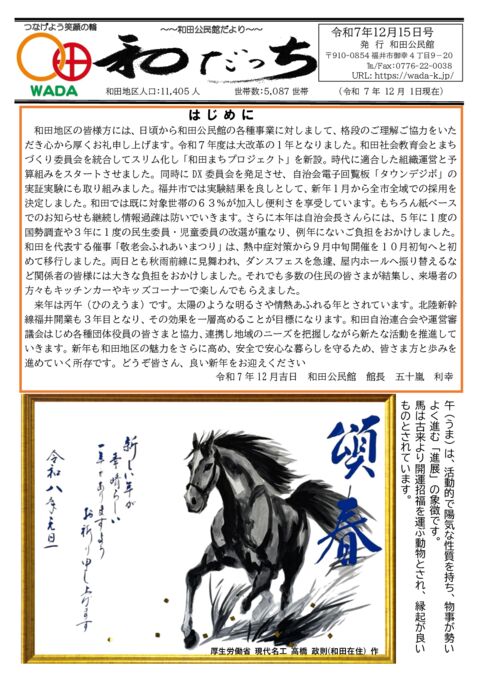 つなげよう笑顔の輪
WADA
～～和田公民館だより～～
和だっち
和田地区人口:11,405 人　世帯数:5,087 世帯
令和7年12月15日号
発 行　和田公民館
〒910-0854 福井市御幸4丁目9－20
℡/Fax:0776-22-0038
URL: https://wada-k.jp/
（令和 7年 12月 1日現在）
はじめに
和田地区の皆様方には、日頃から和田公民館の各種事業に対しまして、格段のご理解ご協力をいた
だき心から厚くお礼申し上げます。令和7年度は大改革の1年となりました。和田社会教育会とまち
づくり委員会を統合してスリム化し「和田まちプロジェクト」を新設。時代に適合した組織運営と予
算組みをスタートさせました。同時に DX 委員会を発足させ、自治会電子回覧板「タウンデジボ」の
実証実験にも取り組みました。福井市では実験結果を良しとして、新年1月から全市全域での採用を
決定しました。和田では既に対象世帯の６３％が加入し便利さを享受しています。もちろん紙ベース
でのお知らせも継続し情報過疎は防いでいきます。さらに本年は自治会長さんらには、5年に1度の
国勢調査や3年に1度の民生委員・児童委員の改選が重なり、例年にないご負担をおかけしました。
和田を代表する催事「敬老会ふれあいまつり」は、熱中症対策から9月中旬開催を10月初旬へと初
めて移行しました。両日とも秋雨前線に見舞われ、ダンスフェスを急遽、屋内ホールへ振り替えるな
ど関係者の皆様には大きな負担をおかけしました。それでも多数の住民の皆さまが結集し、来場者の
方々もキッチンカーやキッズコーナーで楽しんでもらえました。
来年は丙午（ひのえうま）です。太陽のような明るさや情熱あふれる年とされています。北陸新幹
線福井開業も3年目となり、その効果を一層高めることが目標になります。和田自治連合会や運営審
議会はじめ各種団体役員の皆さまと協力、連携し地域のニーズを把握しながら新たな活動を推進して
いきます。新年も和田地区の魅力をさらに高め、安全で安心な暮らしを守るため、皆さま方と歩みを
進めていく所存です。どうぞ皆さん、良い新年をお迎えください
令和7年12月吉日　和田公民館　館長　五十嵐　利幸
午（うま）は、活動的で陽気な性質を持ち、物事が勢い
よく進む「進展」の象徴です。
馬は古来より開運招福を運ぶ動物とされ、縁起が良い
ものとされています。
頌春
新しい年が
素晴らしい
一年でありますよう
お祈り申し上げます
令和八年元旦
厚生労働省 現代名工 高橋 政則(和田在住) 作